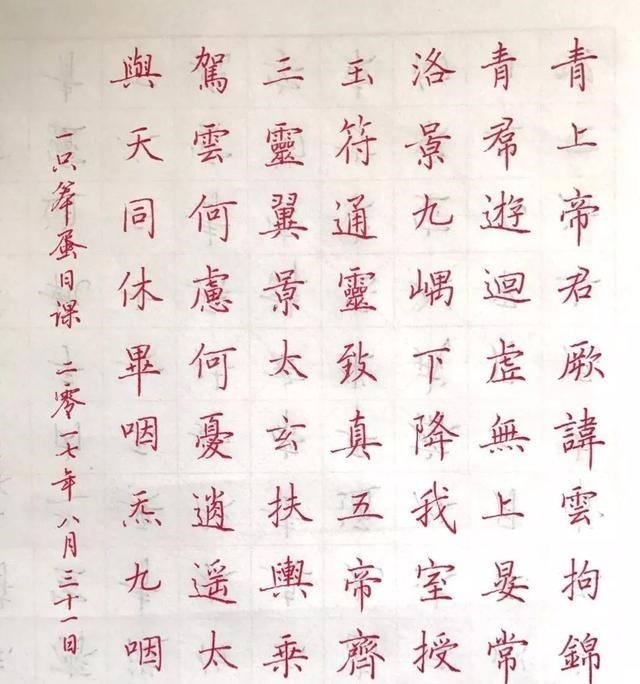 青上帝君厥諱雲拘錦
青帬遊迴虛無上晏常
洛景九嵎下降我室授
玉符通靈致真五帝齊
三靈翼景太玄扶輿乘
駕雲何慮何憂逍遥太
與天同休畢咽炁九咽
一只笨蛋日课 二零一七年八月三十一日